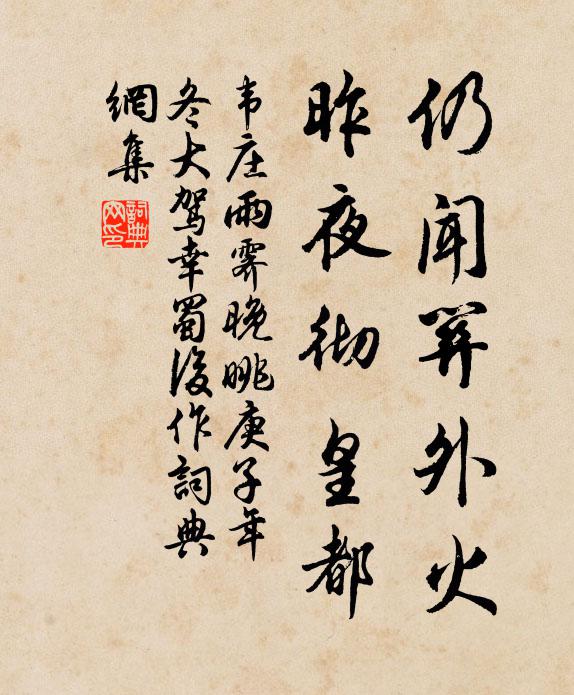 仍闻关外火
昨夜彻皇都
韦庄雨霁晚眺庚子年
冬大驾幸蜀後作詞典
網集
詞典网印